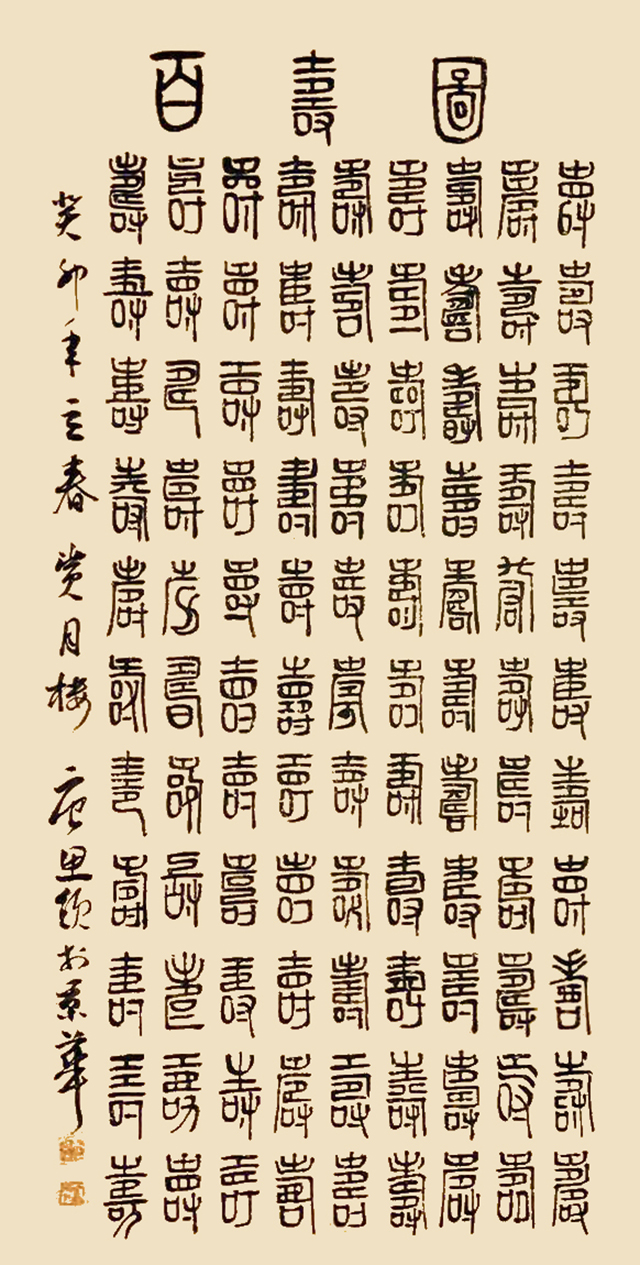 百壽圖
壽壽壽壽壽壽壽壽壽
壽壽壽壽壽壽壽壽壽
壽壽壽壽壽壽壽壽壽
壽壽壽壽壽壽壽壽壽
壽壽壽壽壽壽壽壽壽
壽壽壽壽壽壽壽壽壽
壽壽壽壽壽壽壽壽壽
壽壽壽壽壽壽壽壽壽
壽壽壽壽壽壽壽壽壽
壽壽壽壽壽壽壽壽壽
壽壽壽壽壽壽壽壽壽
癸卯年立春月楼思於京華